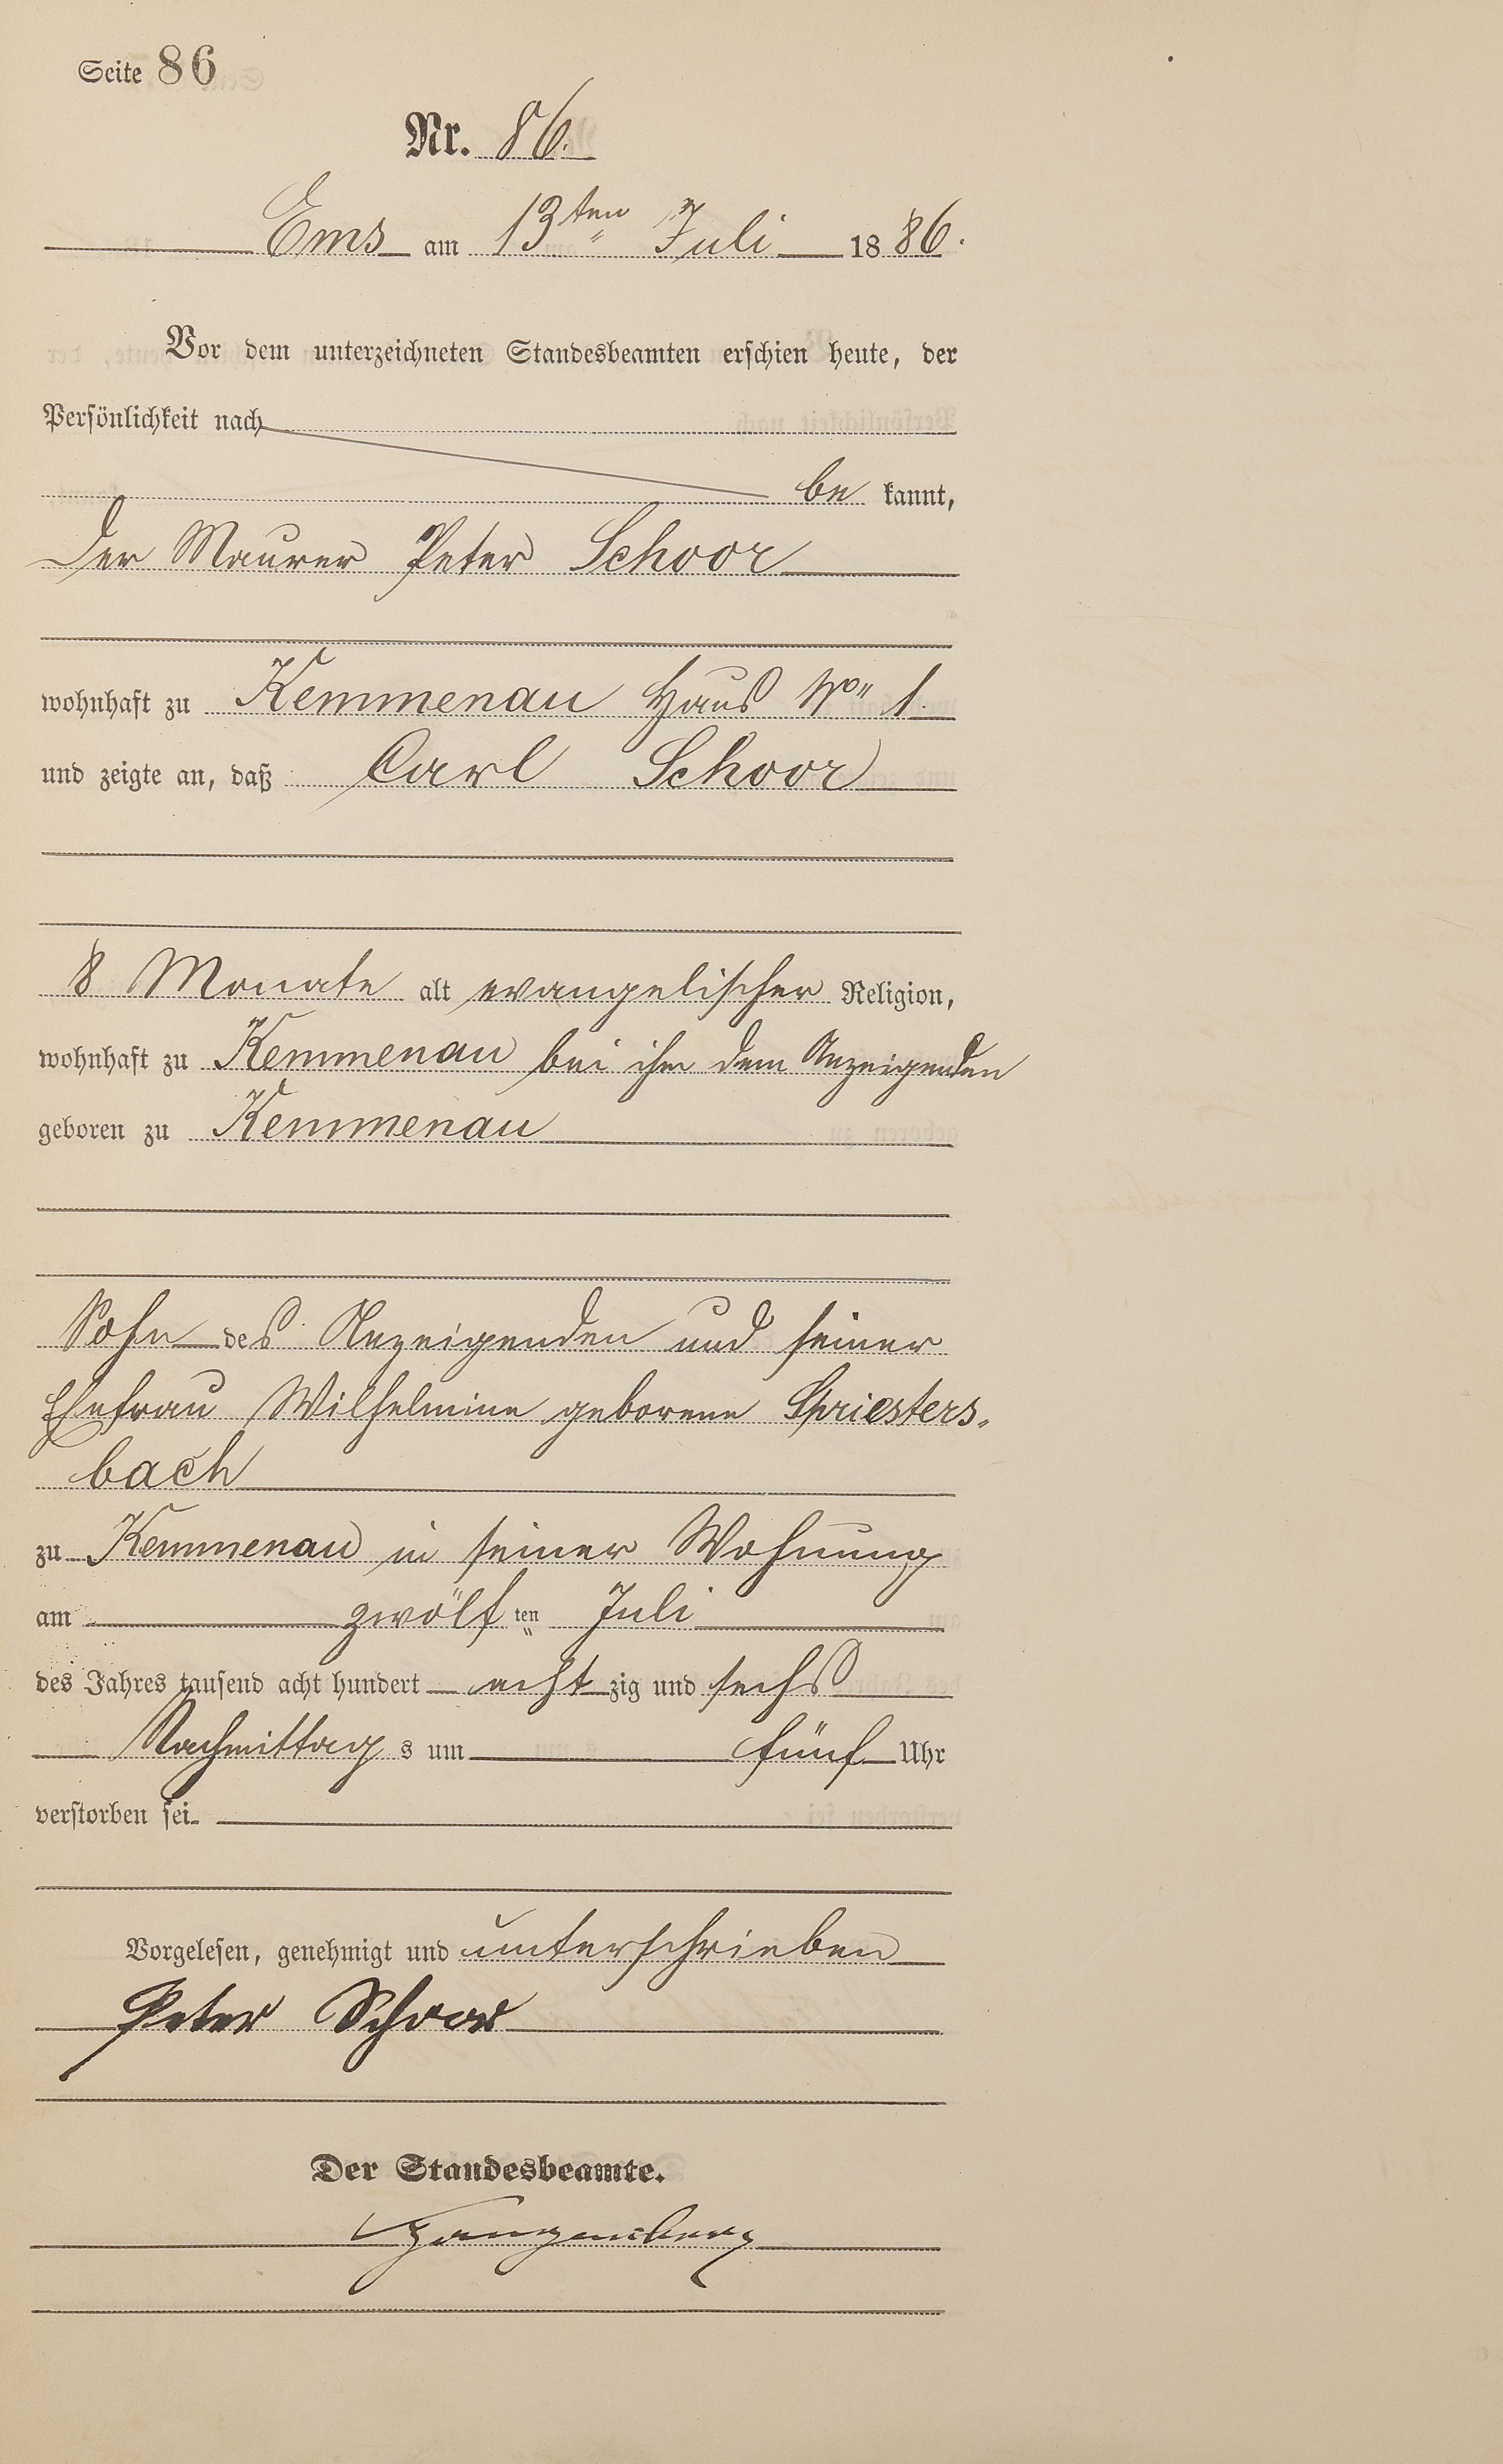 Seite 86
Nr. 86.
Ems am 13ten Juli 1886.
Vor dem unterzeichneten Standesbeamten erschien heute, der
Persönlichkeit nach
be kannt,
Der Maurer Peter Schoor
wohnhaft zu Kemmenau Haus No 1.
und zeigte an, daß Carl Schoor
8 Monate alt evangelischer Religion,
wohnhaft zu Kemmenau bei ihm dem Anzeigenden
geboren zu Kemmenau
Sohn des Anzeigenden und seiner
Ehefrau Wilhelmine geborene Spriesters-
bach
zu Kemmenau in seiner Wohnung
am zwölf ten Juli
des Jahres tausend acht hundert acht zig und sechs
Nachmittag s um fünf Uhr
verstorben sei.
Vorgelesen, genehmigt und unterschrieben
Peter Schoor
Der Standesbeamte.